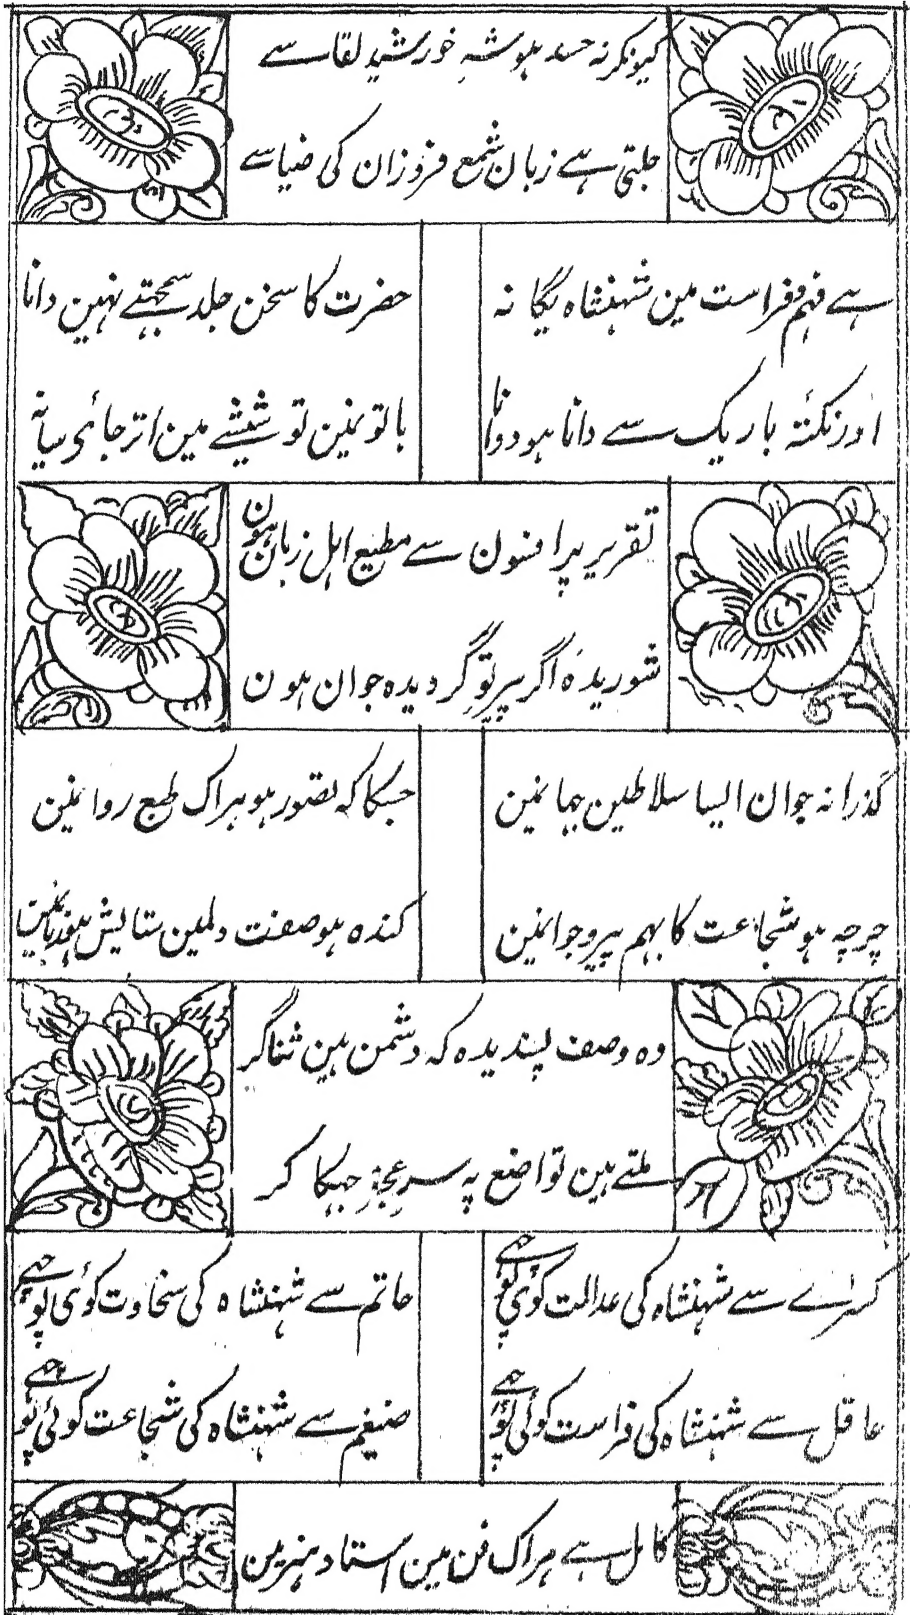 کیونکر نہ حسد ہو شہِ خورشید لقا سے
جلتی ہے زبان شمع فروزان کی ضیا سے
ہے فہم و فراست مین شہنشاہ یگانہ
حضرت کا سخن جلد سمجھتے نہین دانا
اور نکتۂ باریک سے دانا ہو دوانا
باتونمین تو شیشے مین اتر جائی سیانہ
تقریر پر افسون سے مطیع اہل زبان ہون
شوریدہ اگر پیر تو گرویدہ جوان ہون
گذرا نہ جوان ایسا سلاطین جہانمین
جسکا کہ تصور ہو ہر اک طبع روانمین
چرچہ ہو شجاعت کا بہم پیر و جوانمین
کندہ ہو صفت دلمین ستایش ہو زبانمین
وہ وصف پسندیدہ کہ دشمن ہین ثناگر
ملتے ہین تواضع پہ سرِ عجز جہکا کر
کسراے سے شہنشاہ کی عدالت کوئی پوچہے
حاتم سے شہنشاہ کی سخاوت کوئی پوچہے
عاقل سے شہنشاہ کی فراست کوئی پوچہے
ضیغم سے شہنشاہ کی شجاعت کوئی پوچہے
کامل ہے ہر اک فن مین استاد ہنر مین